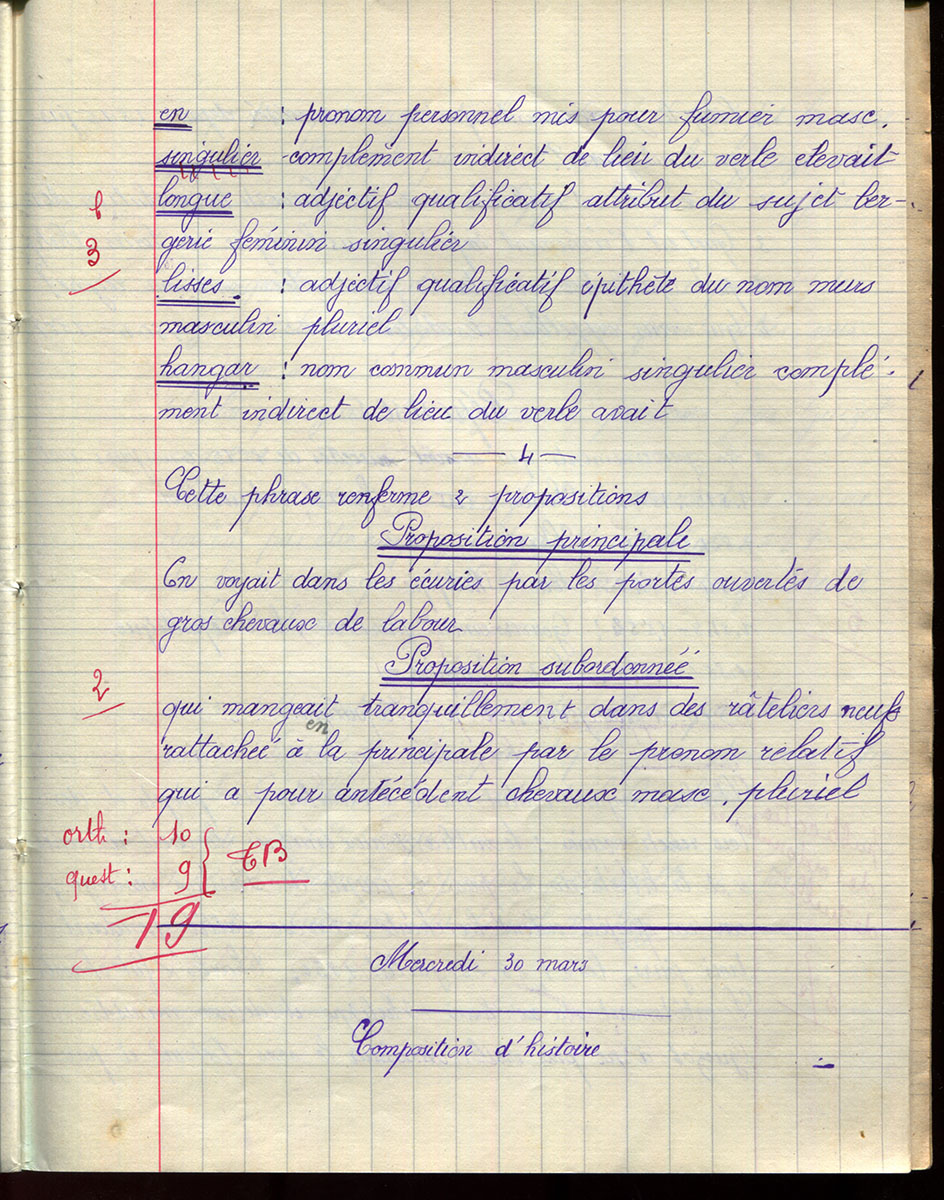 en : pronom personnel mis pour fumier masc.
singulier complément indirect de lieu du verbe élevait
longue : adjectif qualificatif attribut du sujet ber-
gerie féminin singulier
3
lisses : adjectif qualificatif épithète du nom murs
masculin pluriel
hangar : nom commun masculin singulier complé-
ment indirect de lieu du verbe avait
4
Cette phrase renferme 2 propositions
Proposition principale
On voyait dans les écuries par les portes ouvertes de
gros chevaux de labour
Proposition subordonnée
2
qui mangeait tranquillement dans des râteliers neufs
en
rattachée à la principale par le pronom relatif
qui a pour antécédent chevaux masc. pluriel
orth : 10
quest : 9 TB
19
Mercredi 30 mars
Composition d'histoire